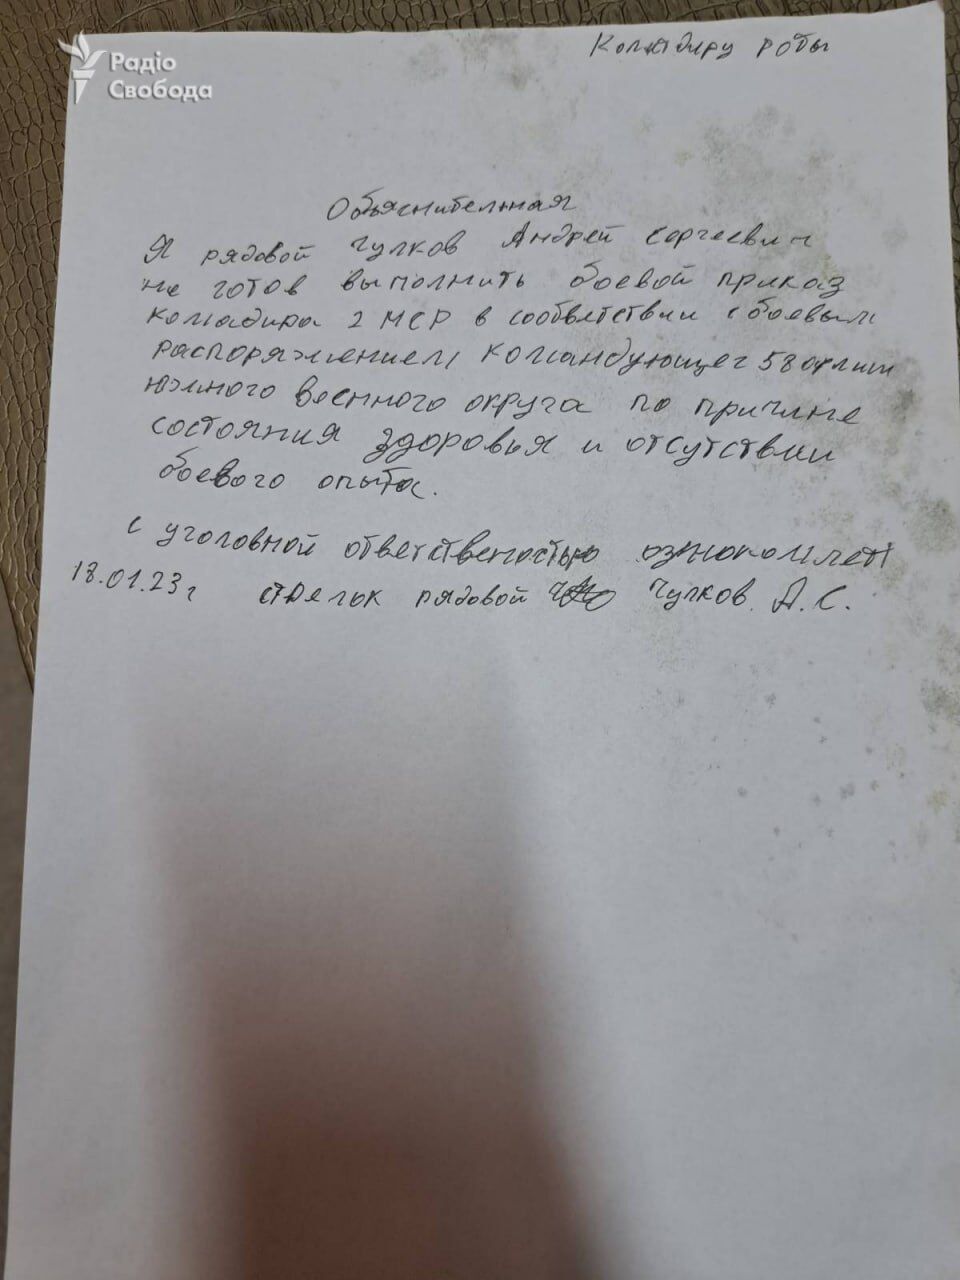 Радіо
Свобода
Командиру роты
Объяснительная
Я рядовой Чулков Андрей Сергеевич
не готов выполнить боевой приказ
командира 2 МСР в соответствии с боевым
распоряжением командующег 58 армии
южного военного округа по причине
состояния здоровья и отсутствии
боевого опыта.
с уголовной ответственостью ознакомлен
18.01.23г стрелок рядовой Чулков. А.С.